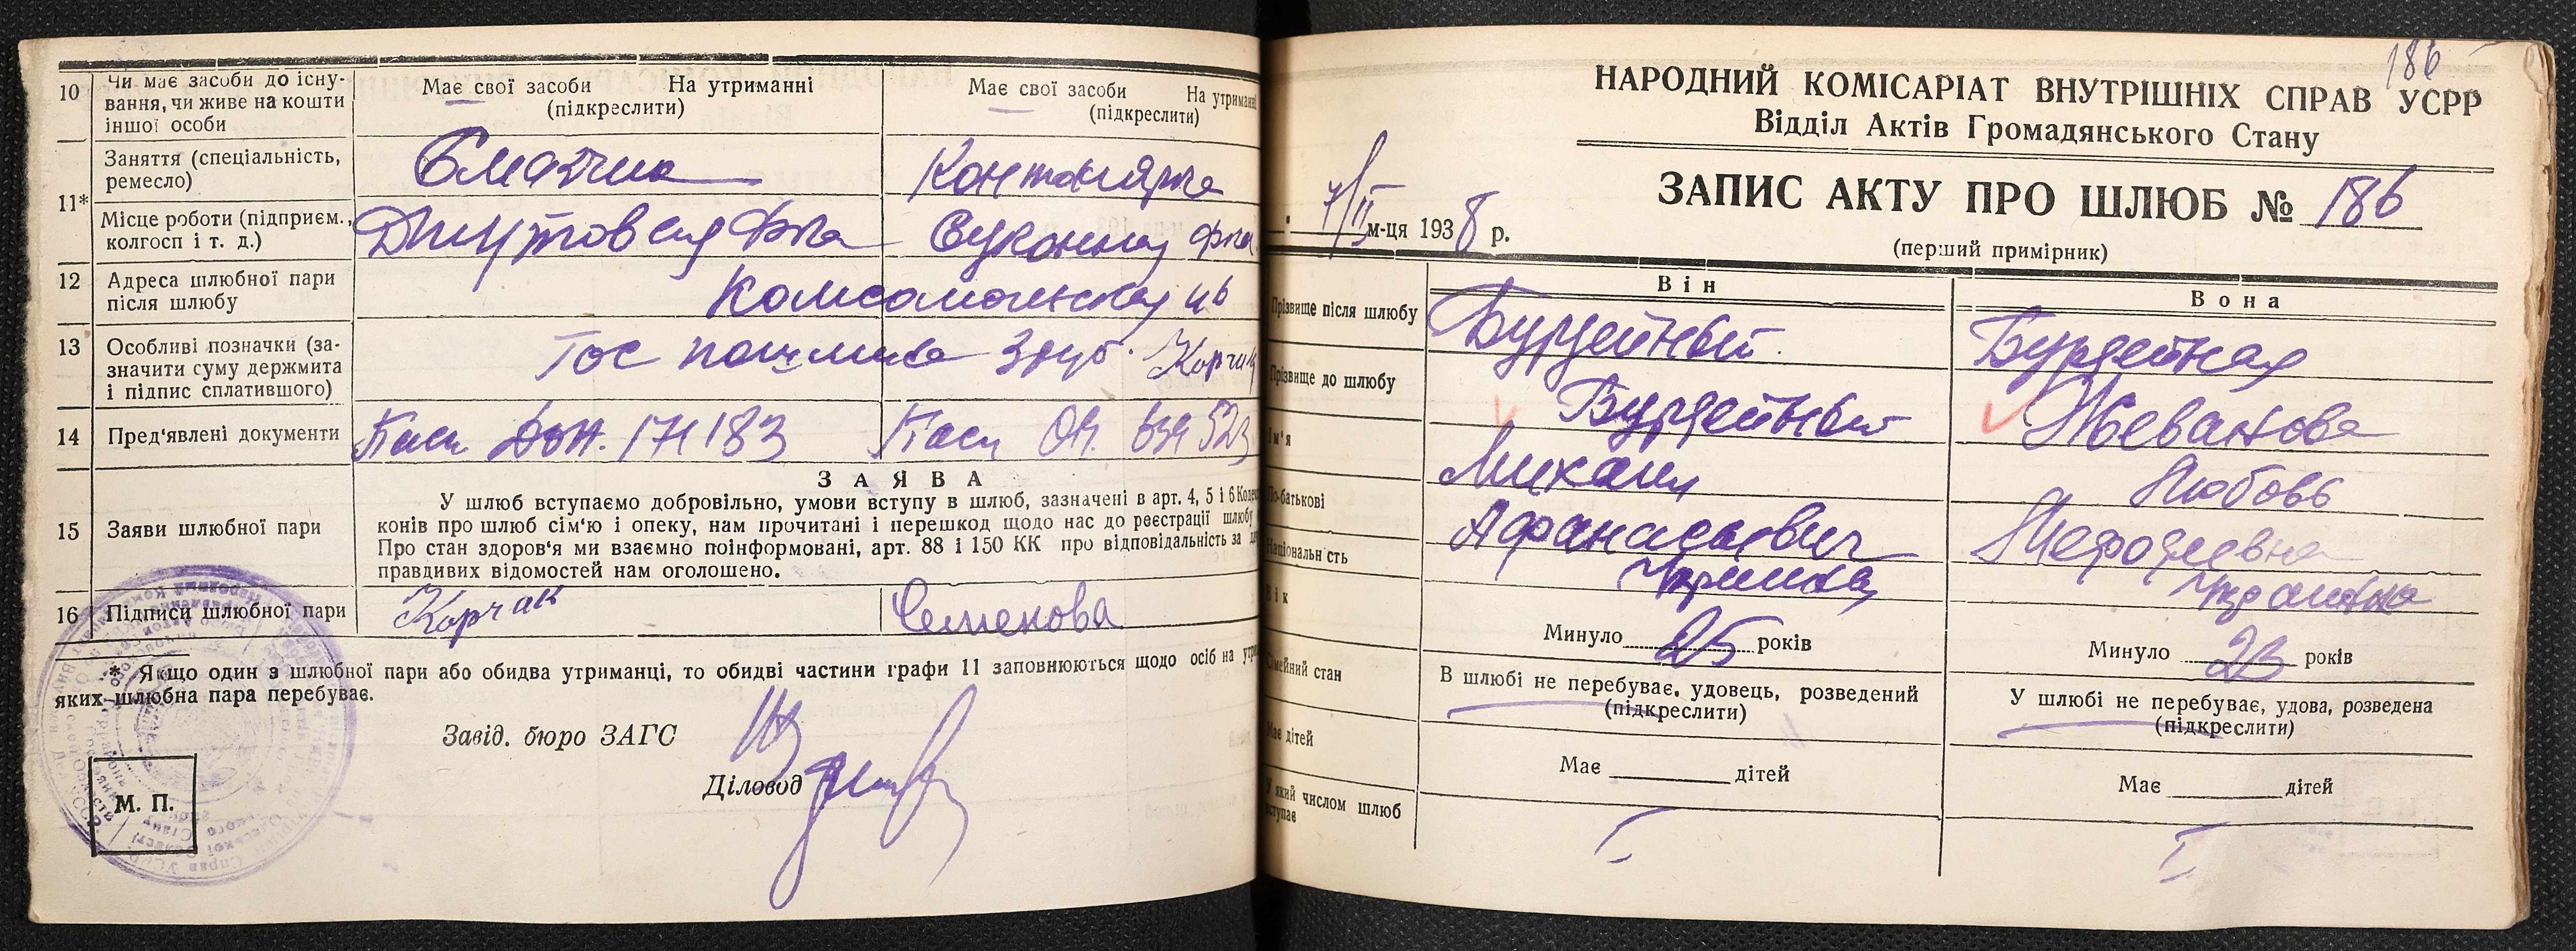 10
Чи має засоби до існу-
вання, чи живе на кошти
іншої особи
Має свої засоби На утриманні
(підкреслити)
Має свої засоби На утриманні
(підкреслити)
11*
Заняття (спеціальність,
ремесло)
Місце роботи (підприєм.,
колгосп і т. д.)
Джутовая Ф-ка
Суконная ф-ка
12
Адреса шлюбної пари
після шлюбу
Комсомольская 46
13
Особливі позначки (за-
значити суму держмита
і підпис сплатившого)
Гос пошлина 3 руб. Корчак
14
Пред'явлені документи
Пасп 171183
Пасп 523
15
Заяви шлюбної пари
ЗАЯВА
У шлюб вступаємо добровільно, умови вступу в шлюб, зазначені в арт. 4, 5 і 6
конів про шлюб сім'ю і опеку, нам прочитані і перешкод щодо нас до реєстрації шлюбу
Про стан здоров'я ми взаємно поінформовані, арт. 88 і 150 КК про відповідальність за
правдивих відомостей нам оголошено.
16
Підписи шлюбної пари
Корчак
Семенова
* Якщо один з шлюбної пари або обидва утриманці, то обидві частини графи 11 заповнюються щодо осіб на
яких шлюбна пара перебуває.
Завід. бюро ЗАГС
Діловод
М. П.
186
НАРОДНИЙ КОМІСАРІАТ ВНУТРІШНІХ СПРАВ УСРР
Відділ Актів Громадянського Стану
ЗАПИС АКТУ ПРО ШЛЮБ № 186
7/II м-ця 1938 р.
(перший примірник)
Він
Вона
Прізвище після шлюбу
Бурдейный
Бурдейная
Прізвище до шлюбу
Бурдейный
Ім'я
Михаил
Любовь
По-батькові
Афанасьевич
Мефодиевна
Національність
Украинец
Украинка
Вік
Минуло 25 років
Минуло 23 років
Сімейний стан
В шлюбі не перебуває, удовець, розведений
(підкреслити)
У шлюбі не перебуває, удова, розведена
(підкреслити)
Має дітей
Має ____ дітей
Має ____ дітей
У який числом шлюб
вступає
I
I